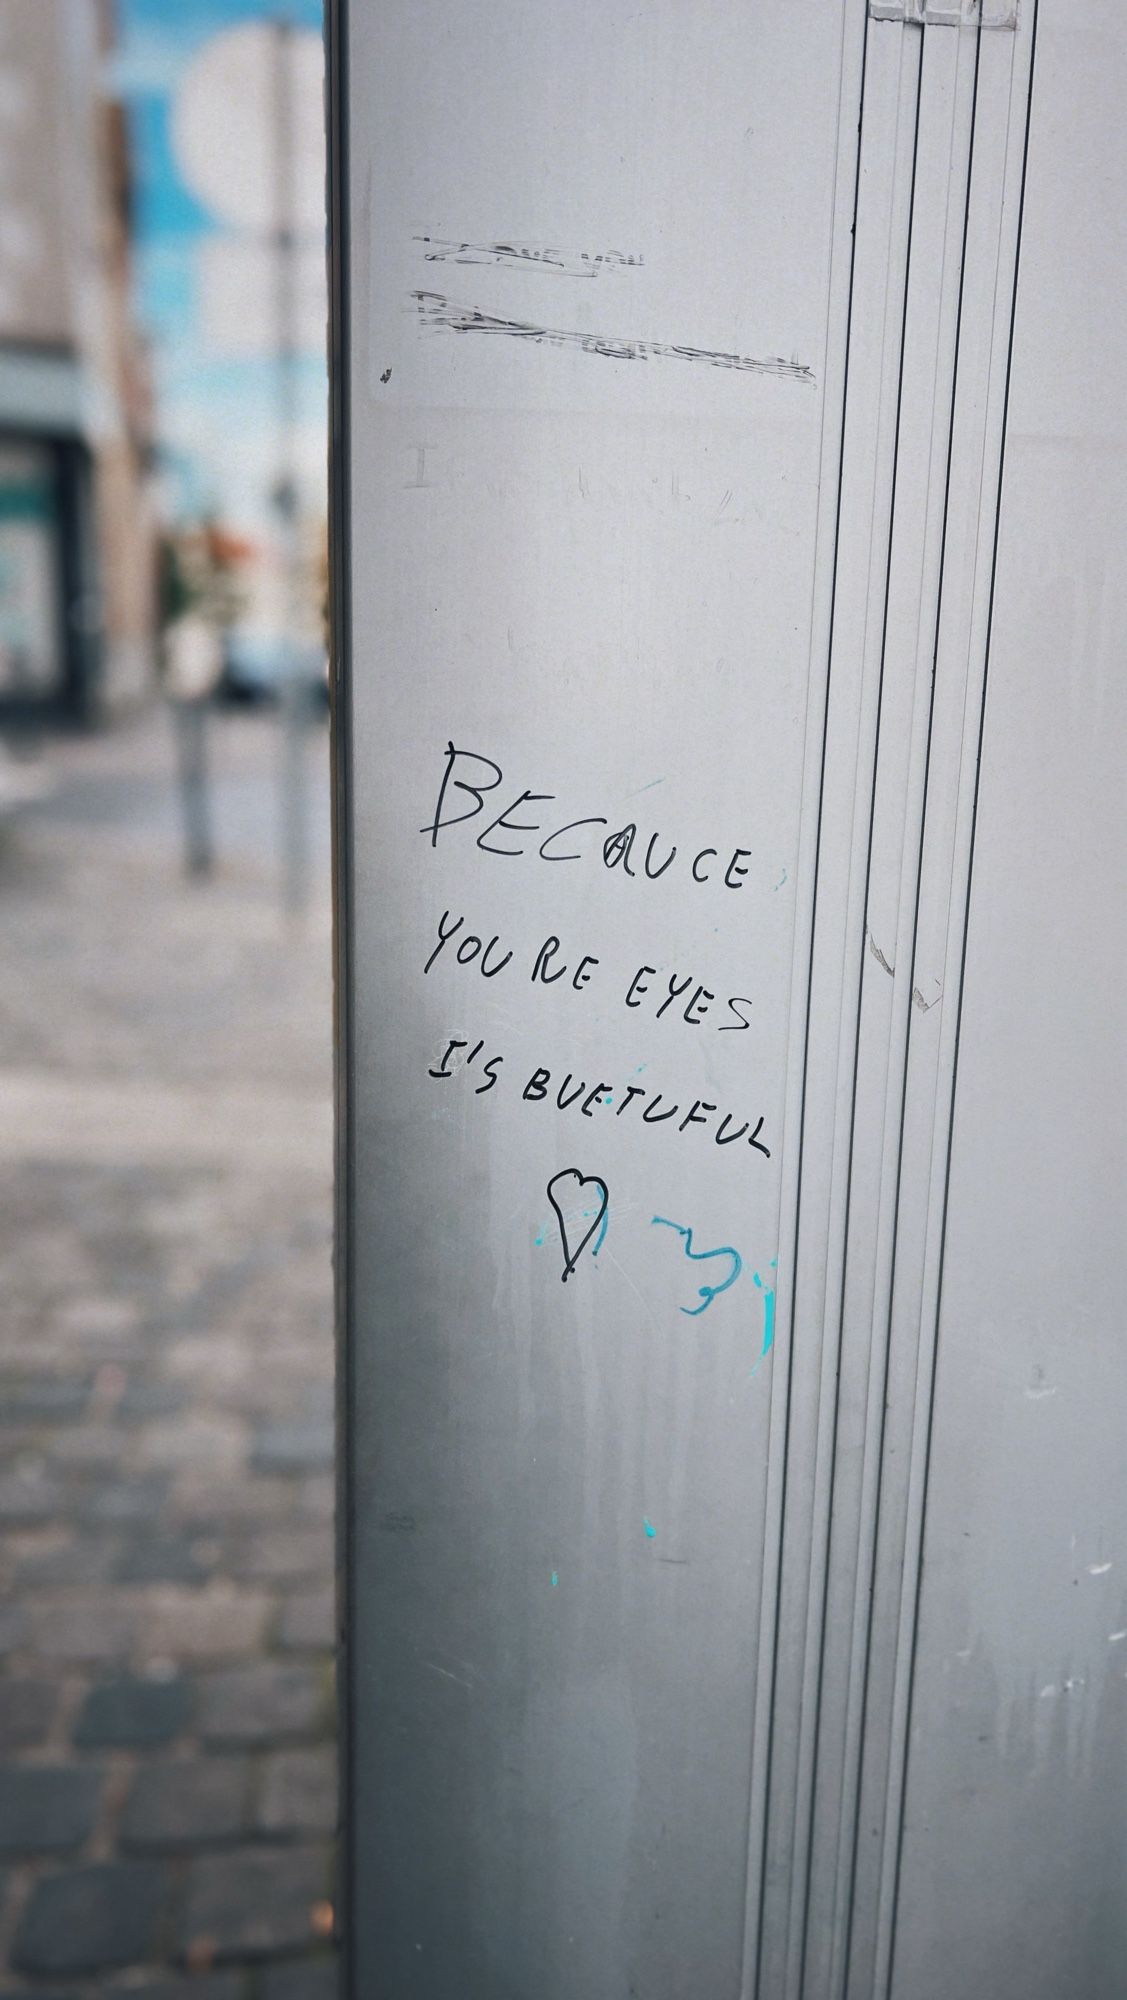 BECAUCE
YOURE EYES
I'S BUETUFUL